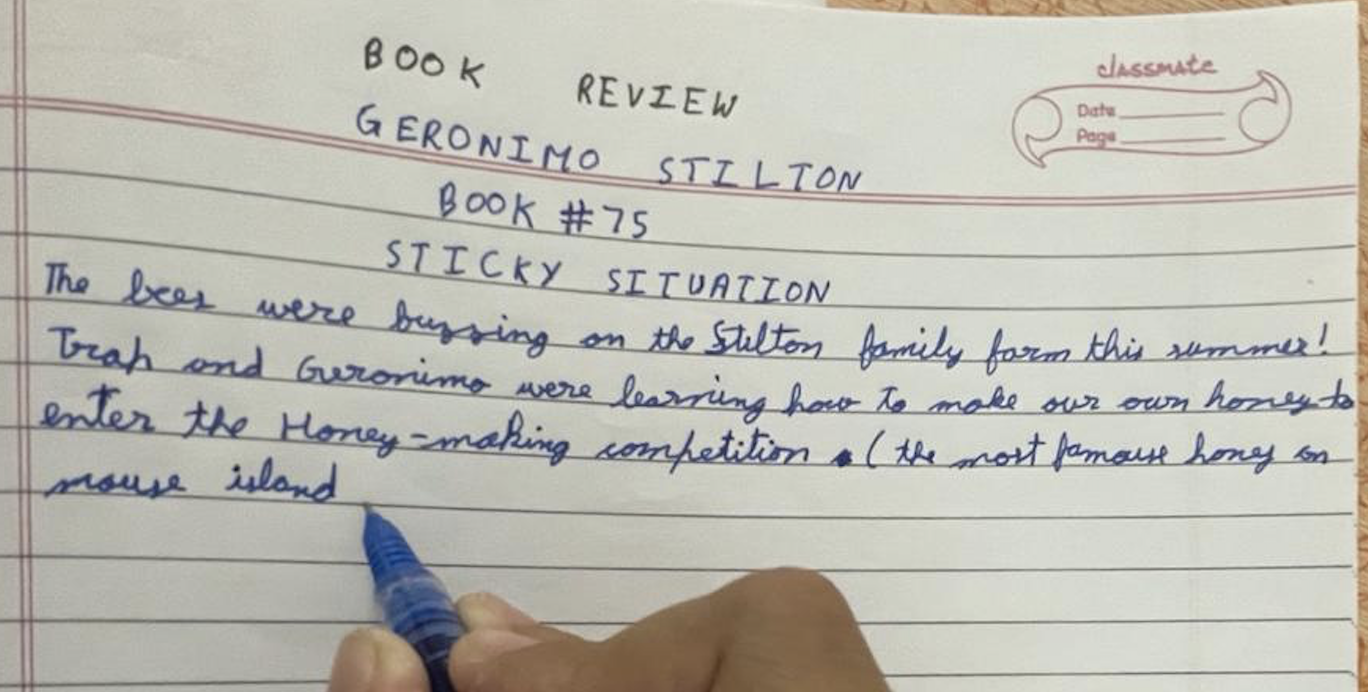 BOOK REVIEW
classmate
Date
Page
GERONIMO STILTON
BOOK #75
STICKY SITUATION
The bees were buzzing on the Stilton family farm this summer!
Trap and Geronimo were learning how to make our own honey to
enter the Honey-making competition . (the most famouse honey on
mouse island